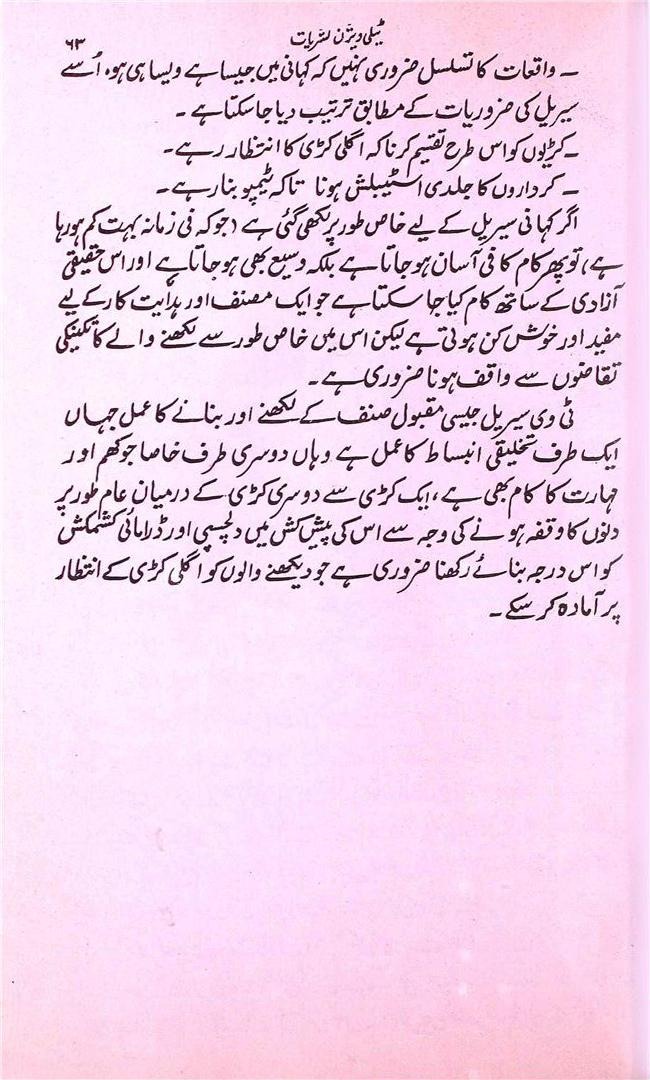 ٹیلی ویژن نشریات
۶۳
۔ واقعات کا تسلسل ضروری نہیں کہ کہانی میں جیسا ہے ویسا ہی ہو، اُسے
سیریل کی ضروریات کے مطابق ترتیب دیا جا سکتا ہے ۔
۔ کڑیوں کو اس طرح تقسیم کرنا کہ اگلی کڑی کا انتظار رہے۔
۔ کرداروں کا جلدی اسٹیبلش ہونا تاکہ ٹیمپو بنا رہے۔
اگر کہانی سیریل کے لیے خاص طور پر لکھی گئی ہے (جو کہ فی زمانہ بہت کم ہو رہا
ہے) تو پھر کام کافی آسان ہو جاتا ہے بلکہ وسیع بھی ہو جاتا ہے اور اس حقیقی
آزادی کے ساتھ کام کیا جا سکتا ہے جو ایک مصنف اور ہدایت کار کے لیے
مفید اور خوش کن ہوتی ہے لیکن اس میں خاص طور سے لکھنے والے کا تکنیکی
تقاضوں سے واقف ہونا ضروری ہے۔
ٹی وی سیریل جیسی مقبول صنف کے لکھنے اور بنانے کا عمل جہاں
ایک طرف تخلیقی انبساط کا عمل ہے وہاں دوسری طرف خاصا جوکھم اور
مہارت کا کام بھی ہے، ایک کڑی سے دوسری کڑی کے درمیان عام طور پر
دنوں کا وقفہ ہونے کی وجہ سے اس کی پیش کش میں دلچسپی اور ڈرامائی کشمکش
کو اس درجہ بنائے رکھنا ضروری ہے جو دیکھنے والوں کو اگلی کڑی کے انتظار
پر آمادہ کر سکے ۔